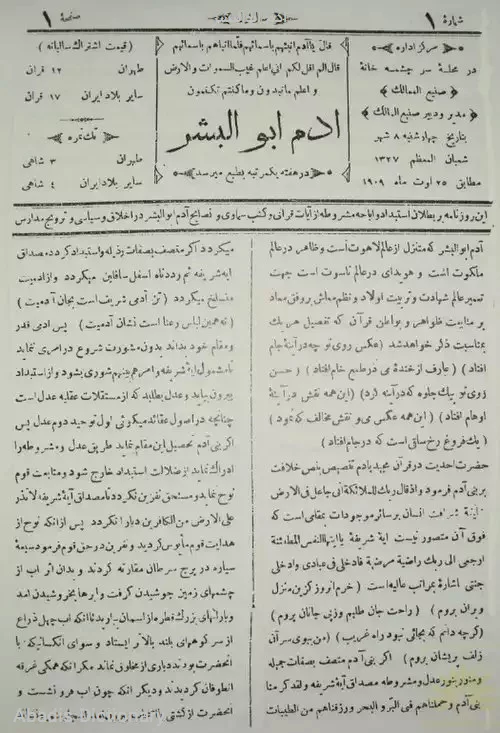 شماره ۱
سال اول
صفحه ۱
مرکز اداره
در محله سر چشمه خانه
صنیع الممالک
مدیر و دبیر صنیع الممالک
بتاریخ چهارشنبه ۸ شهر
شعبان المعظم ۱۳۲۷
مطابق ۲۵ اوت ماه ۱۹۰۹
قال یا آدم انبئهم باسمائهم فلما انباهم باسمائهم
قال الم اقل لکم انی اعلم غیب السموات والارض
و اعلم ما تبدون وما کنتم تکتمون
ادم ابو البشر
در هفته یکمرتبه بطبع میرسد
(قیمت اشتراک سالیانه)
طهران ۱۲ قران
سایر بلاد ایران ۱۷ قران
تک نمره
طهران ۳ شاهی
سایر بلاد ایران ۴ شاهی
این روزنامه بر بطلان استبداد و اباحه مشروطه از آیات قرآنی و کتب سماوی و نصایح آدم ابو البشر در اخلاق و سیاسی و ترویج مدارس
آدم ابو البشر که متنزل از عالم لاهوت است و ظاهر در عالم
ملکوت است و هویدای در عالم ناسوت است جهت
تعمیر عالم شهادت و تربیت اولاد و نظم معاش بر وفق معاد
بر متابعت ظواهر و بواطن قرآن که تفصیل هر یک
بمناسبت ذکر خواهد شد (عکس روی تو چه در آینه جام
افتاد) (عارف از خنده می در طمع خام افتاد) (حسن
روی تو بیک جلوه که در آینه کرد) (این همه نقش در آینه
اوهام افتاد) (این همه عکس می و نقش مخالف که نمود)
(یک فروغ رخ ساقی است که در جام افتاد)
حضرت احدیت در قرآن مجید یادم تقصیص بنص خلافت
بر بنی آدم فرمود و اذ قال ربک للملائکة انی جاعل فی الارض
خلیفة شرافت انسان بر سائر موجودات بمقامی است که
فوق آن متصور نیست ایة شریفة یا ایتها النفس المطمئنة
ارجعی الی ربک راضیة مرضیة فادخلی فی عبادی و ادخلی
جنتی اشارة بمراتب عالیه است (خرم آنروز کزین منزل
ویران بروم) (راحت جان طلبم وز پی جانان بروم)
(کرچه دانم که بجائی نبرد راه غریب) (من ببوی سر آن
زلف پریشان بروم) اگر بنی آدم متصف بصفات جمیله
و منور بنور عدل و مشروطه مصداق آیة شریفه و لقد کرمنا
بنی آدم و حملناهم فی البر و البحر و رزقناهم من الطیبات
میگردد اگر متصف بصفات رذیله و استبداد گردد مصداق
ایه شریفه ثم رددناه اسفل سافلین میگردد و از ادمیت
منسلخ میگردد (تن آدمی شریف است بجان آدمیت)
(نه همین لباس زیباست نشان آدمیت) پس ادمی قدر
و مقام خود بداند بدون مشورت شروع در امری ننماید
تا مشمول ایة شریفه و امرهم بینهم شوری بشود و از استبداد
بیرون بیاید و عدل بطلبد که از مستقلات عقلیه عدل است
چنانچه در اصول عقائد میگوئی اول توحید دوم عدل پس
اگر بنی آدم تحصیل این مقام نماید طریق عدل و مشروطه را
ادراک نماید از ضلالت استبداد خارج شود و متابعت قوم
نوح ننماید و مستحق نفرین نگردد تا مصداق آیة شریفه لا تذر
علی الارض من الکافرین دیارا نگردد پس از انکه نوح از
هدایت قوم مأیوس گردید و نفرین در حق قوم فرمود سبعة
سیاره در برج سرطان مقارنه کردند و بدان اثر اب از
چشمهای زمین جوشیدن گرفت و ابرها بخروشیدن امد
و بارانهای بزرگ قطره از اسمان بارید تا انکه اب چهل ذراع
از سر کوههای بلند بالاتر ایستاد و سوای انکسانیکه با
انحضرت بودند دیاری از مخلوق نماند مگر انکه همگی غرقه
طوفان کردیدند و دیگر انکه چون اب فرو نشست و
انحضرت از کشتی
Abadis Dictionary